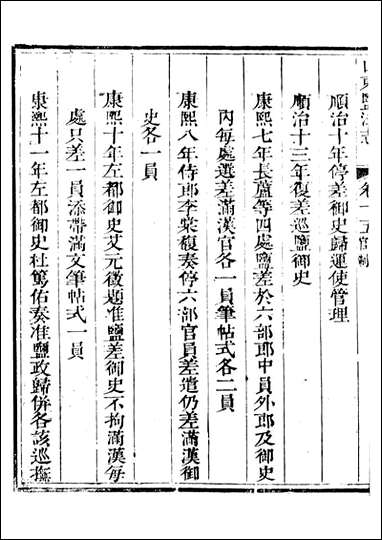 山東鹽法志 卷十五官績
順治十年停差御史歸運使管理
順治十三年復差巡鹽御史
康熙七年長蘆等四處鹽差於六部郎中員外郎及御史
內每處選差滿漢官各一員筆帖式各二員
康熙八年侍郎李棠馥奏停六部官員差遣仍差滿漢御
史各一員
康熙十年左都御史艾元徵題准鹽差御史不拘滿漢每
處只差一員添帶滿文筆帖式一員
康熙十一年左都御史杜篤佑奏准鹽政歸併各該巡撫